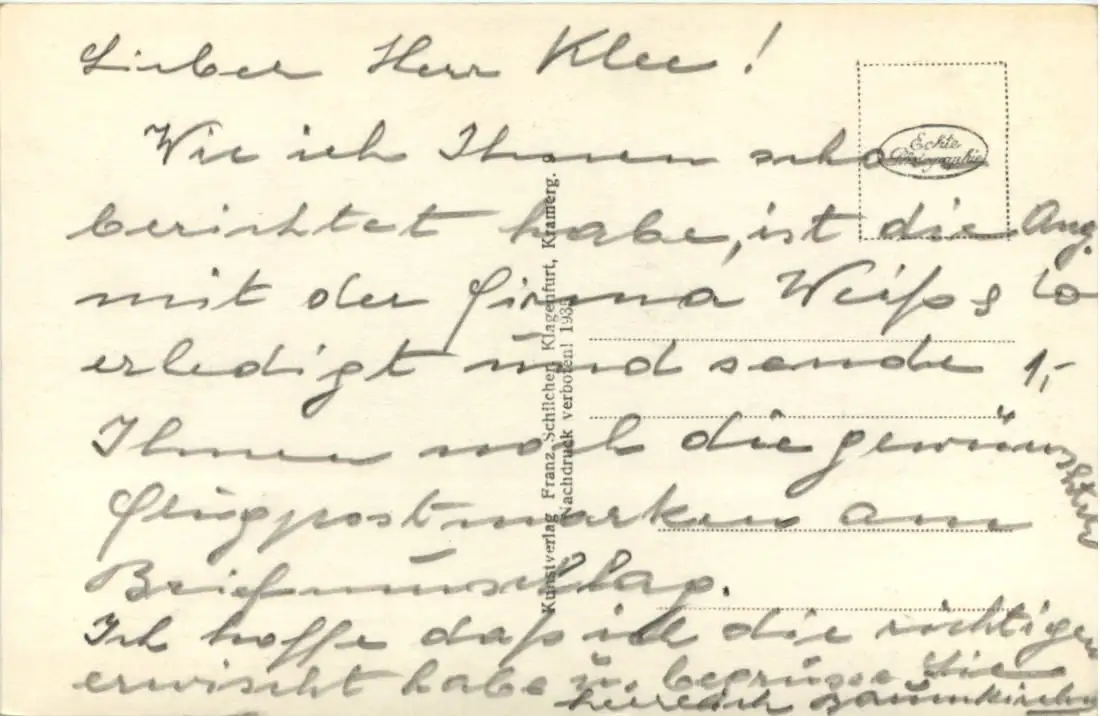 Lieber Herr Klee!
Echte
Photographie
Wie ich Ihnen scho
berichtet habe, ist die Ang.
mit der Firma Weiß
erledigt und sende 1,-
Ihnen noch die gewünschten
Flugpostmarken am
Briefumschlag.
Ich hoffe daß ich die richtigen
erwischt habe u. begrüsse Sie
herzlich Baumkirchn
Kunstverlag Franz Schilcher, Klagenfurt, Kramerg.
Nachdruck verboten! 1935